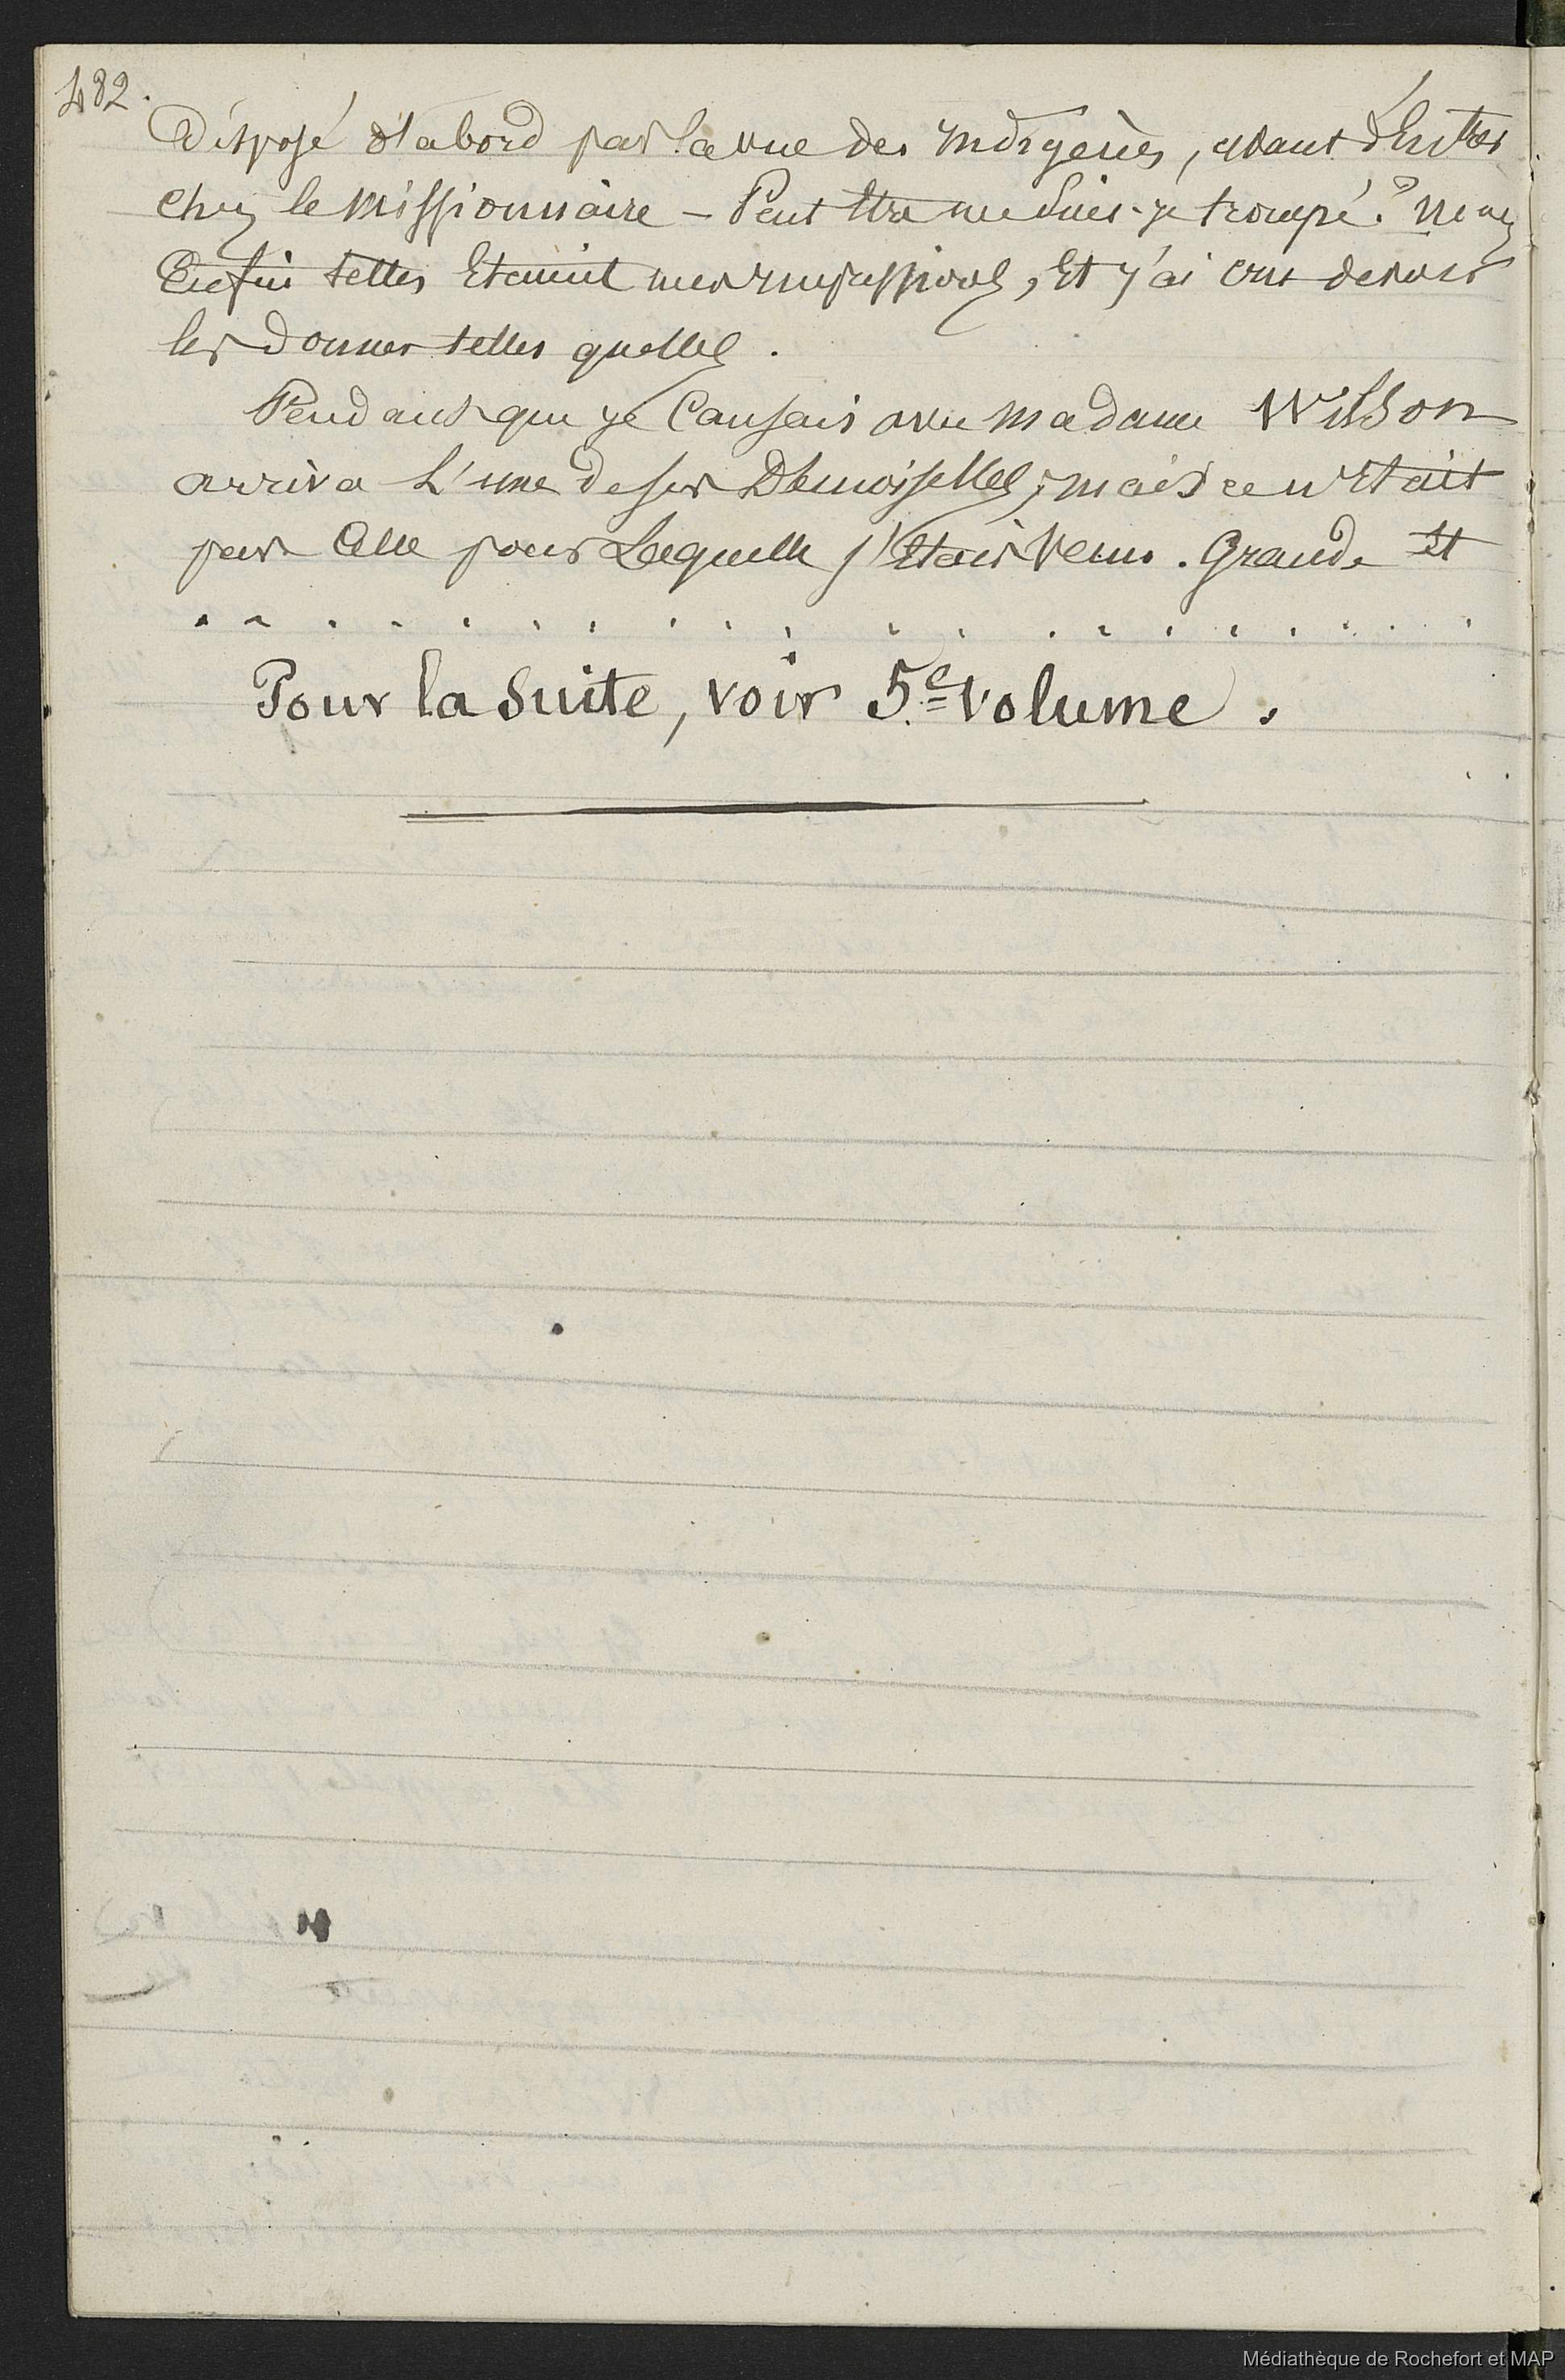 482.
Disposé d'abord par la vue des indigènes, avant d'entrer
chez le missionnaire - Peut etre me suis-je trompé ? mais
Enfin telles Etaient mes impressions, Et j'ai cru devoir
les donner telles quelles.
Pendant que je Causais avec madame Wilson
arriva L'une de ses Demoiselles ; mais ce n'Etait
pas Celle pour Laquelle j'Etais Venu. Grande Et
. . . . . . . . . . . . . . . . . . . .
Pour la suite, voir 5e volume.
Médiathèque de Rochefort et MAP